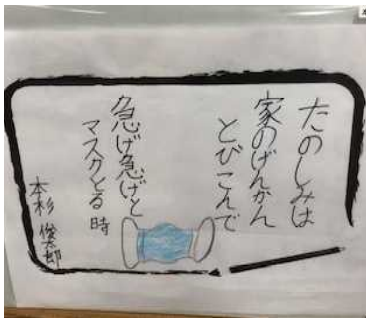 たのしみは
家のげんかん
とびこんで
急げ急げと
マスクとる時
本杉 俊太郎